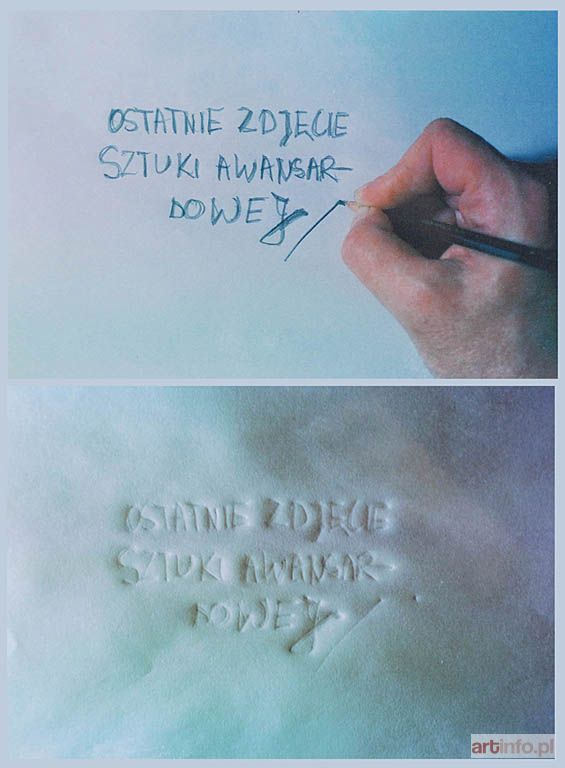 OSTATNIE ZDJĘCIE
SZTUKI AWANGAR-
DOWEJ
OSTATNIE ZDJĘCIE
SZTUKI AWANGAR-
DOWEJ
artinfo.pl